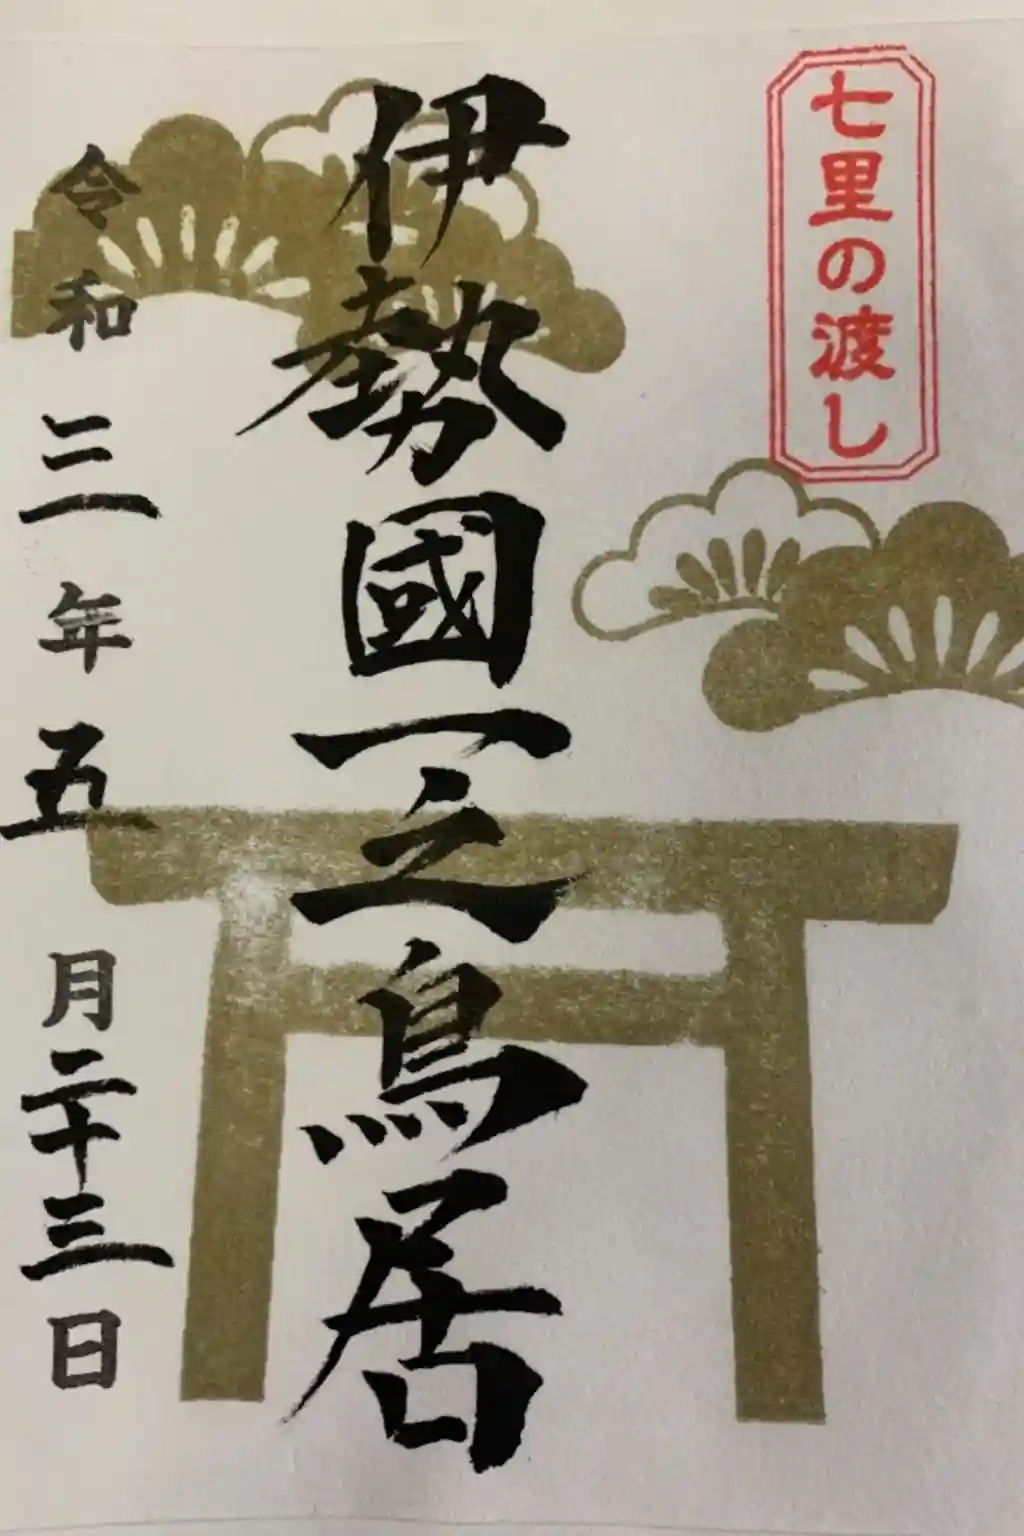 七里の渡し
伊勢國一之鳥居
令和三年五月二十三日